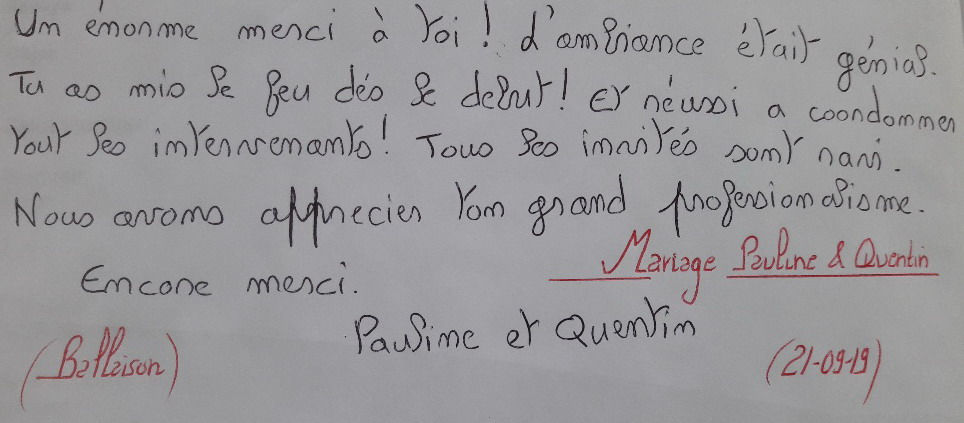 Un énorme merci à toi ! L'ambiance était génial.
Tu as mis le feu dés le debut ! Et réussi a coordonner
tout les intervenants ! Tous les invités sont ravi.
Nous avons apprecier ton grand professionalisme.
Encore merci.
Mariage Pauline & Quentin
Pauline et Quentin
(Ballaison)
(21-09-19)